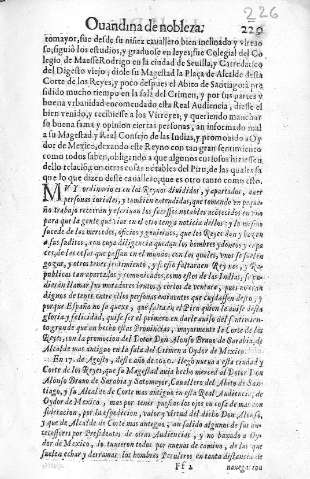 226
Ouandina de nobleza. 229
tomayor, fue desde su niñez cavallero bien inclinado y virtuo
so, siguió los estudios, y graduose en leyes, fue Colegial del Co
legio de Maese Rodrigo en la ciudad de Sevilla, y Catredatico
del Digesto viejo; diole su Magestad la Plaça de Alcalde desta
Corte de los Reyes, y poco despues el Abito de Santiago: a pre
sidido mucho tiempo en la sala del Crimen, y por sus partes y
buena urbanidad encomendado esta Real Audiencia, diesse el
bien venido, y recibiesse a los Virreyes, y queriendo manchar
su buena fama y opinion ciertas personas, an informado mal
a su Magestad y Real Consejo de las Indias, y promovido a Oy
dor de Mexico, dexando este Reyno con tan gran sentimiento
como todos saben, obligando a que algunos curiosos hiziessen
dello relacion en otras cosas notables del Piru, de las quales fa
lo que lo dize deste cavallero, que es otro tanto como esto.
MUY ordinario es en los Reynos divididos, y apartados, aver
personas curiosas, y tambien entendidas, que tomando un peque
ño trabajo recorren y escrivan los sucessos notables acontecidos en
para que la gente que vive en el otro tenga noticia dellos; y lo mismo
sucede de las mercedes, oficios y que los Reyes dan y hazen
a sus subditos, con cuya diligencia quedan los hombres y capa
ces, de las cosas que passan en el mundo: con los quales, unos se
gozan, y otros traen sentimiento, y si esto faltara en Reynos, y Re
publicas tan apartadas y remotas, como estos de las Indias, se
dignos de tente entre ellos personas que cuydassen desto, y
porque España no se quexe, que falta en el Piru quien la avise desta
gloria y felicidad, quise ser el primero en darle aviso del
que an hecho estas Provincias, mayormente la Corte de los
Reyes, con la promocion del Dotor Don Alonso Bravo de Sarabia, de
Alcalde mas antiguo en la sala del Crimen a Oydor de Mexico.
En 17. de Agosto, deste año de 1620. llegò nueva a esta ciudad y
Corte de los Reyes, que su Magestad avia hecho merced al Dotor Don
Alonso Bravo de Sarabia y Sotomayor, Cavallero del Abito de San-
tiago, y su Alcalde de Corte mas antiguo en esta Real Audiencia, de
Oydor de Mexico, mas por tener puestos los ojos en cosa de mas con
sideracion, por la espedicion, valor y virtud del dicho Don Alonso,
y que de Alcalde de Corte mas antiguo; an salido algunos de sus an
tecessores por Presidentes de otras Audiencias, y no baxado a Oy
dor de Mexico, lo tuvieron todos por nuevas de camino, de las que
suelen echar y derramar los hombres Peruleros en tanta distancia de
Ff 2 navega-cion